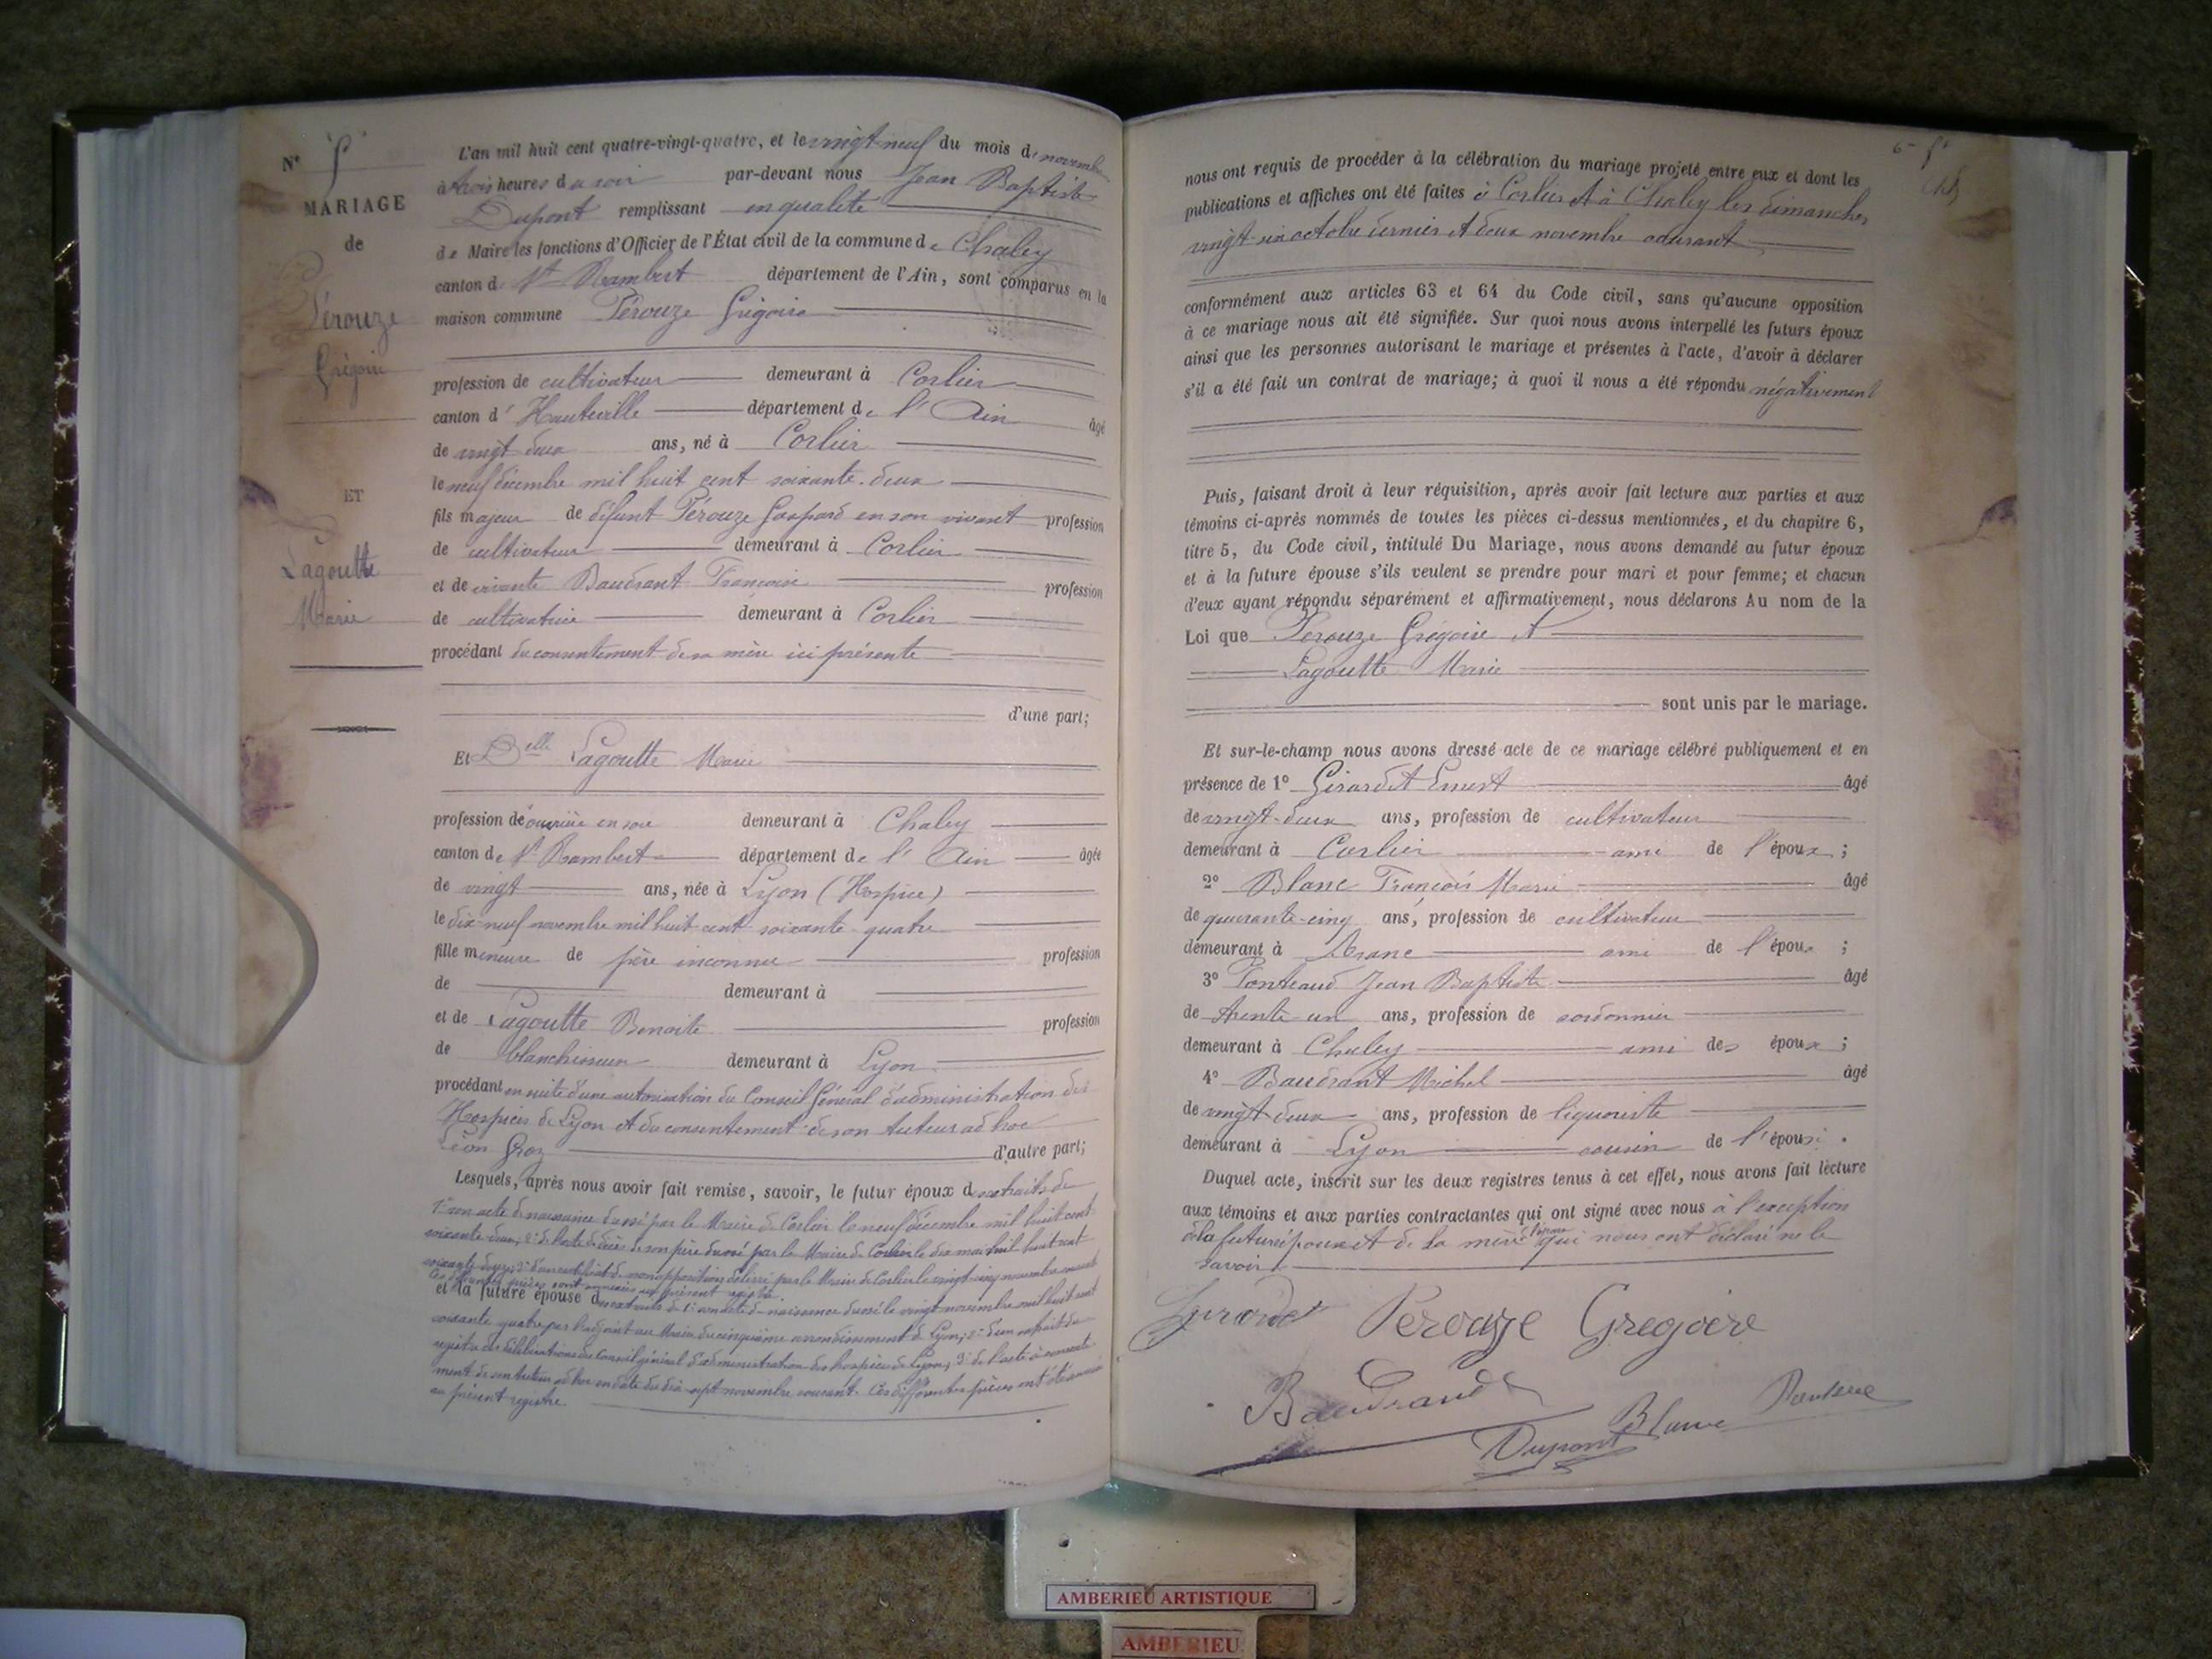 N° 5
MARIAGE
de
Pérouze
Grégoire
ET
Lagoutte
Marie
L'an mil huit cent quatre-vingt-quatre, et le vingt-neuf du mois de novembre
à trois heures du soir par-devant nous Jean Baptiste
Dupont remplissant en qualité
de Maire les fonctions d'Officier de l'État civil de la commune de Chaley
canton de St Rambert département de l'Ain, sont comparus en la
maison commune Pérouze Grégoire
profession de cultivateur demeurant à Corlier
canton d'Hauteville département de l'Ain âgé
de vingt deux ans, né à Corlier
le neuf décembre mil huit cent soixante-deux
fils majeur de défunt Pérouze Gaspard en son vivant profession
de cultivateur demeurant à Corlier
et de vivante Baudrant Françoise profession
de cultivatrice demeurant à Corlier
procédant du consentement de sa mère ici présente
d'une part;
Et Delle Lagoutte Marie
profession de ouvrière en soie demeurant à Chaley
canton de St Rambert département de l'Ain âgée
de vingt ans, née à Lyon (Hospice)
le dix-neuf novembre mil huit cent soixante-quatre
fille mineure de père inconnu profession
de demeurant à
et de Lagoutte Benoite profession
de blanchisseuse demeurant à Lyon
procédant en suite d'une autorisation du Conseil Général d'administration des
Hospices de Lyon et du consentement de son tuteur ad hoc
Léon Groz d'autre part;
Lesquels, après nous avoir fait remise, savoir, le futur époux d'extraits de
1° son acte de naissance dressé par le Maire de Corlier le neuf décembre mil huit cent
soixante-deux; 2° de l'acte de décès de son père dressé par le Maire de Corlier le dix mai mil huit cent
soixante 3° d'un certificat de non opposition délivré par le Maire de Corlier le vingt-cinq novembre courant
Ces différentes pièces sont annexées au présent registre.
et la future épouse des extraits de 1° son acte de naissance dressé le vingt novembre mil huit cent
soixante quatre par l'adjoint au Maire du cinquième arrondissement de Lyon; 2° d'un extrait du
registre des délibérations du Conseil général d'administration des hospices de Lyon; 3° de l'acte de consente-
ment de son tuteur ad hoc en date du dix-sept novembre courant. Ces différentes pièces ont été annexées
au présent registre.
nous ont requis de procéder à la célébration du mariage projeté entre eux et dont les
publications et affiches ont été faites à Corlier et à Chaley les dimanches
vingt-six octobre dernier et deux novembre courant
conformément aux articles 63 et 64 du Code civil, sans qu'aucune opposition
à ce mariage nous ait été signifiée. Sur quoi nous avons interpellé les futurs époux
ainsi que les personnes autorisant le mariage et présentes à l'acte, d'avoir à déclarer
s'il a été fait un contrat de mariage; à quoi il nous a été répondu négativement
Puis, faisant droit à leur réquisition, après avoir fait lecture aux parties et aux
témoins ci-après nommés de toutes les pièces ci-dessus mentionnées, et du chapitre 6,
titre 5, du Code civil, intitulé Du Mariage, nous avons demandé au futur époux
et à la future épouse s'ils veulent se prendre pour mari et pour femme; et chacun
d'eux ayant répondu séparément et affirmativement, nous déclarons Au nom de la
Loi que Pérouze Grégoire et
Lagoutte Marie
sont unis par le mariage.
Et sur-le-champ nous avons dressé acte de ce mariage célébré publiquement et en
présence de 1° Girardet Ernest âgé
de vingt-deux ans, profession de cultivateur
demeurant à Corlier ami de l'époux;
2° Blanc François Marie âgé
de quarante-cinq ans, profession de cultivateur
demeurant à Aranc ami de l'époux;
3° Jean Baptiste âgé
de trente un ans, profession de cordonnier
demeurant à Chaley ami des époux;
4° Baudrant Michel âgé
de vingt-deux ans, profession de liquoriste
demeurant à Lyon cousin de l'époux.
Duquel acte, inscrit sur les deux registres tenus à cet effet, nous avons fait lecture
aux témoins et aux parties contractantes qui ont signé avec nous à l'exception
de la future épouse et de la mère de l'époux qui nous ont déclaré ne le
savoir.
Girardet Perouze Gregoire
Baudrand
Dupont Blanc
AMBERIEU ARTISTIQUE
AMBERIEU